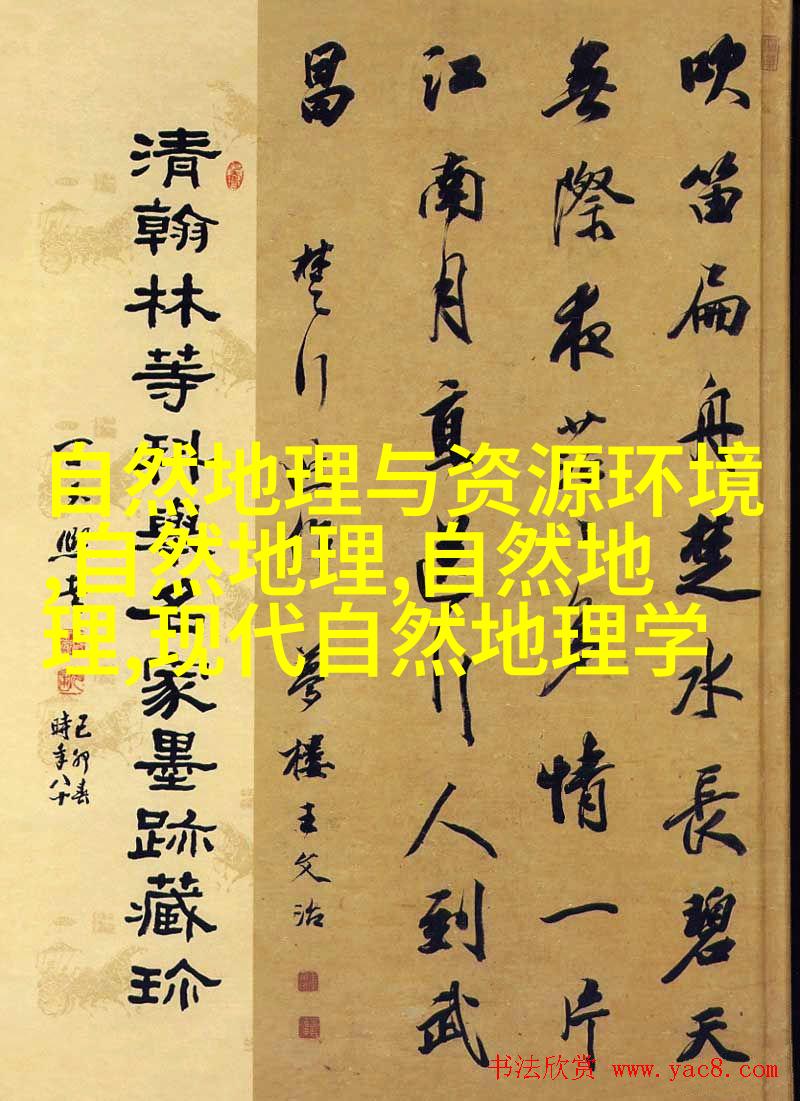 吹笛扁舟楚水長碧天
無際夜
情一片
江南月直
人到武
昌
楚行
夢樓王文治
清翰林等科舉名家墨跡藏珍
己卯春
時年八十
自然地理与资源环境
,自然地理,自然地
理,现代自然地理学
书法欣赏 www.yac8.com